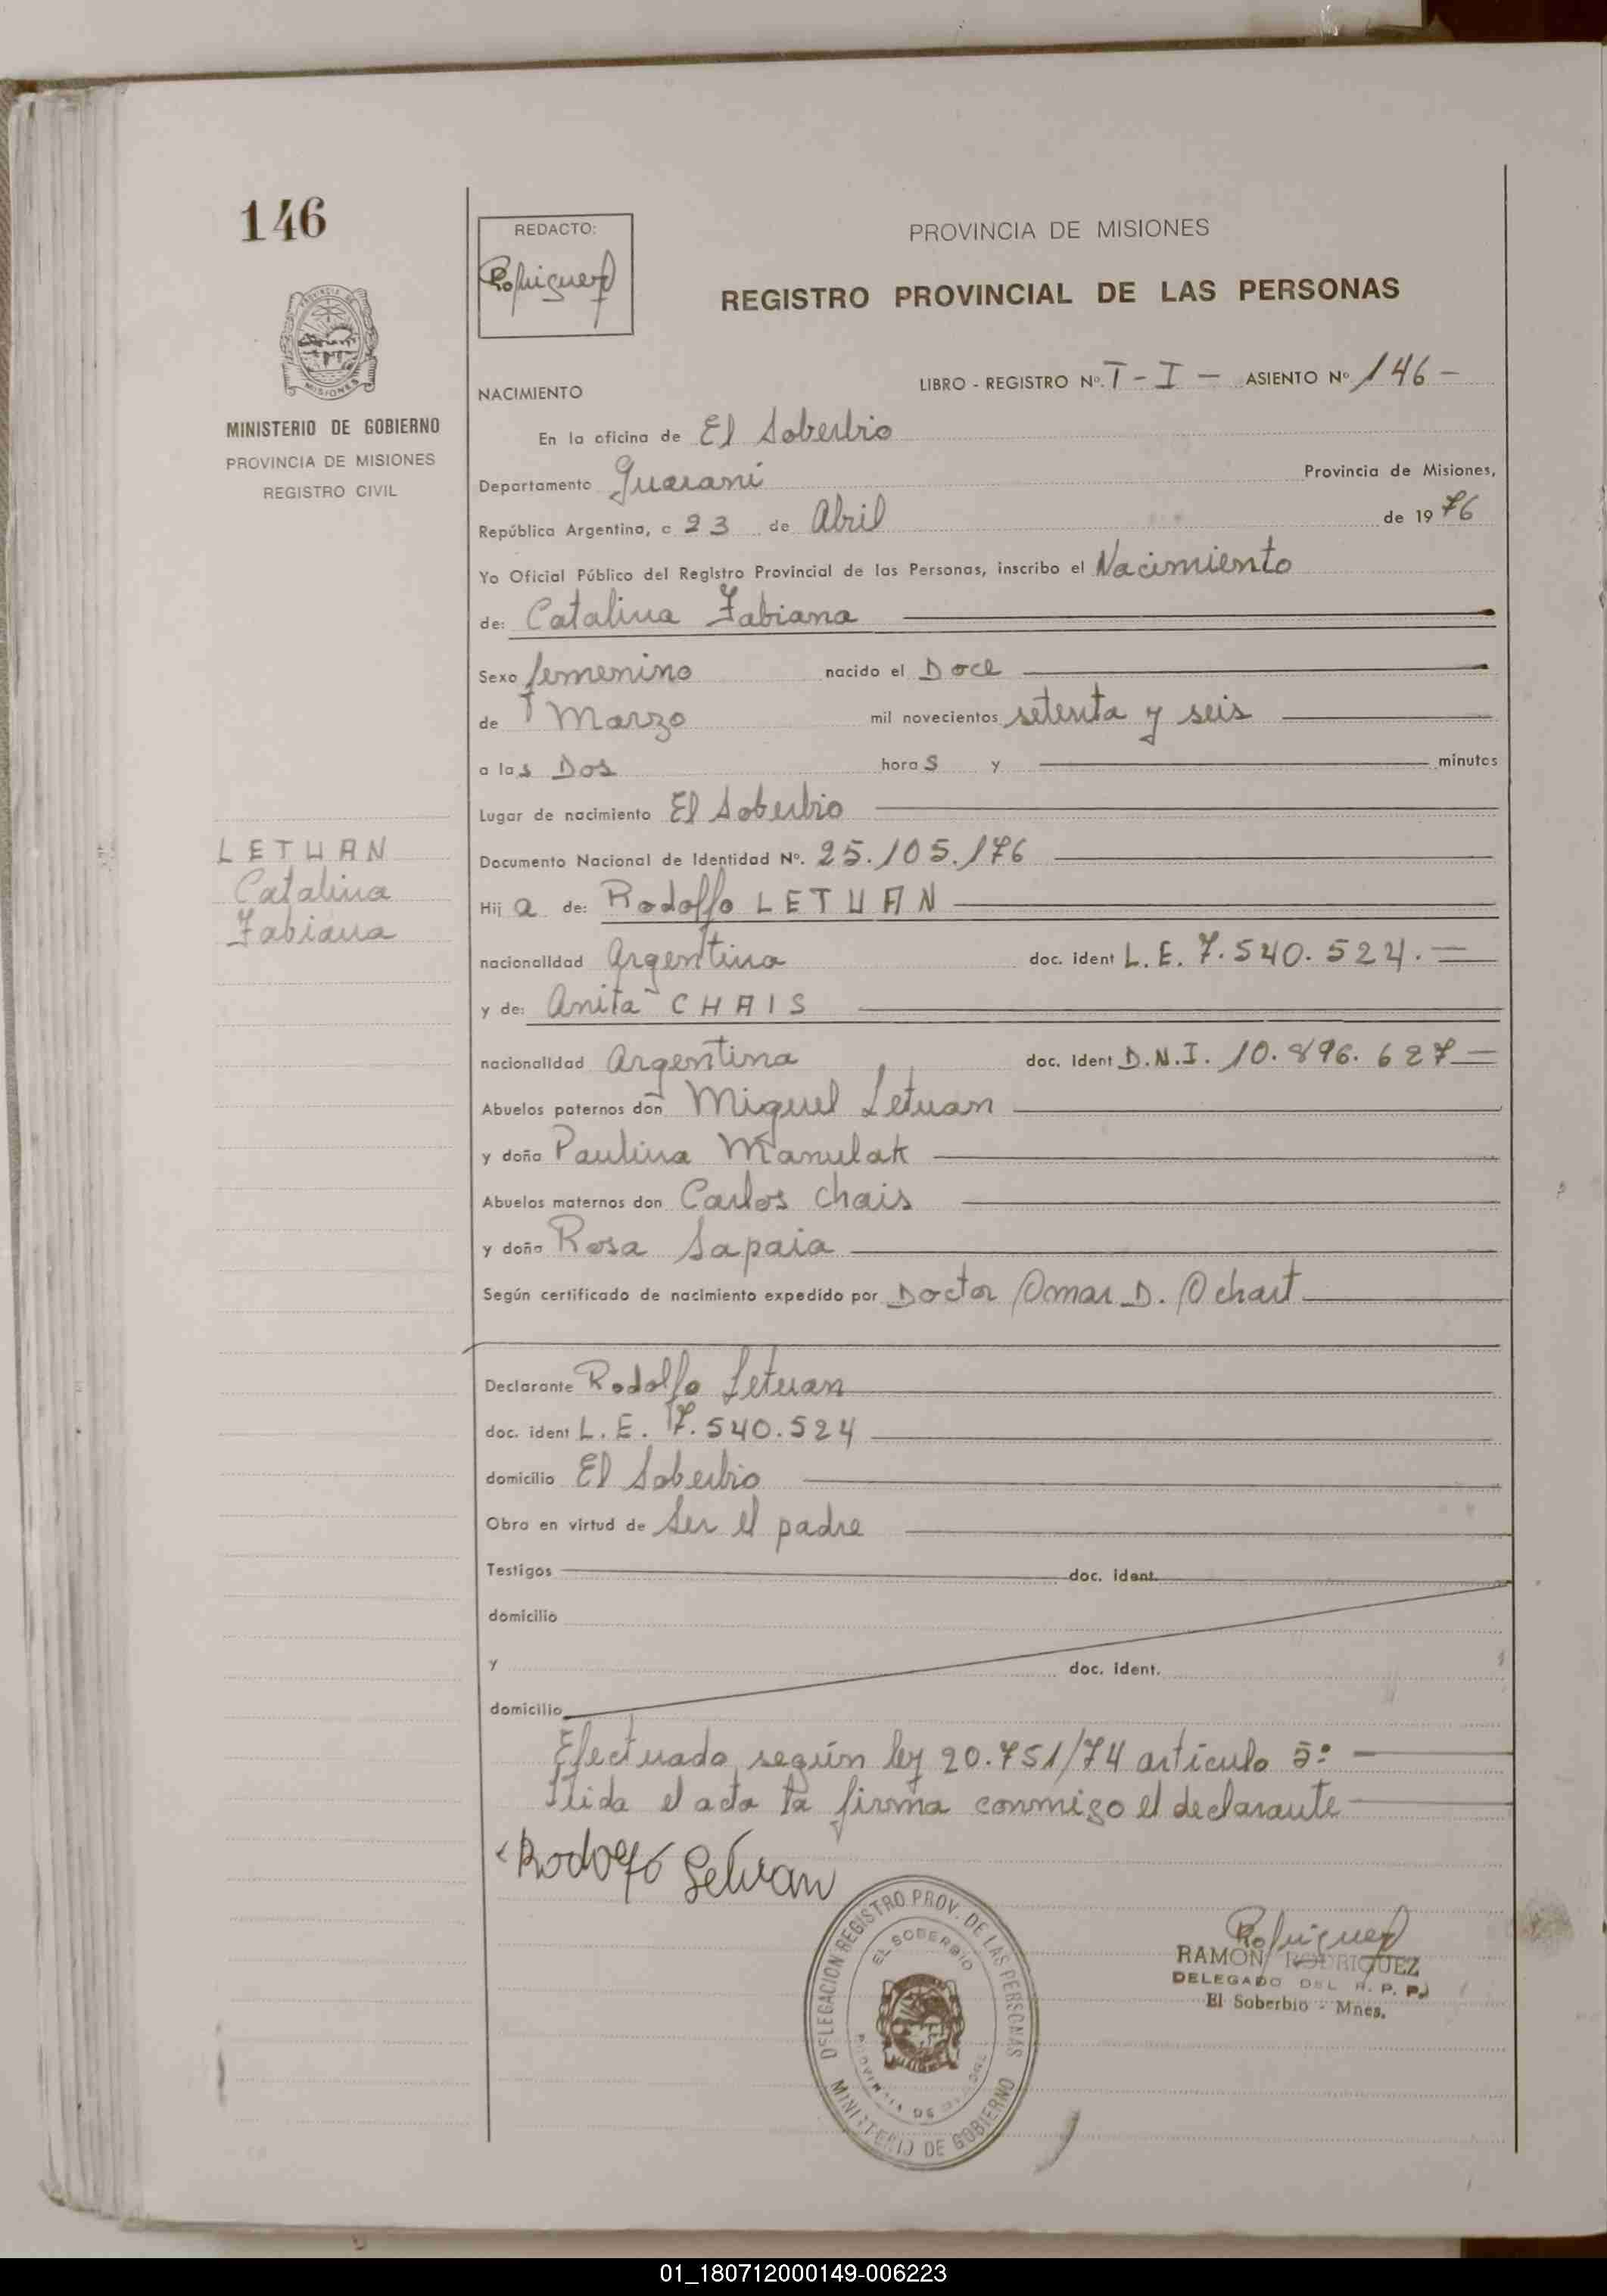 146
REDACTO:
Rodriguez
PROVINCIA DE MISIONES
REGISTRO PROVINCIAL DE LAS PERSONAS
MISIONES
MINISTERIO DE GOBIERNO
PROVINCIA DE MISIONES
REGISTRO CIVIL
NACIMIENTO
LIBRO - REGISTRO Nº. T - I - ASIENTO Nº 146 -
En la oficina de El Soberbio
Departamento Guarani Provincia de Misiones,
República Argentina, a 23 de Abril de 1976
Yo Oficial Público del Registro Provincial de las Personas, inscribo el Nacimiento
de: Catalina Fabiana
Sexo femenino nacido el Doce
de Marzo mil novecientos setenta y seis
a las Dos horas y minutos
Lugar de nacimiento El Soberbio
LETUAN
Catalina
Fabiana
Documento Nacional de Identidad Nº. 25.105.176
Hija de: Rodolfo LETUAN
nacionalidad Argentina doc. ident L.E. 7.540.524.
y de: Anita CHAIS
nacionalidad Argentina doc. ident D.N.I. 10.896.627
Abuelos paternos don Miguel Letuan
y doña Paulina Manulak
Abuelos maternos don Carlos Chais
y doña Rosa Sapaia
Según certificado de nacimiento expedido por Doctor Omar D. Ochart
Declarante Rodolfo Letuan
doc. ident L.E. 7.540.524
domicilio El Soberbio
Obro en virtud de Ser el padre
Testigos doc. ident.
domicilio
y doc. ident.
domicilio
Efectuado según ley 20.751/74 artículo 5º
leida el acta la firma conmigo el declarante
Rodolfo Letuan
DELEGACION REGISTRO PROV. DE LAS PERSONAS
EL SOBERBIO
PROVINCIA DE MISIONES
MINISTERIO DE GOBIERNO
Rodriguez
RAMON RODRIGUEZ
DELEGADO DEL R. P. P.
El Soberbio - Mnes.
01_180712000149-006223